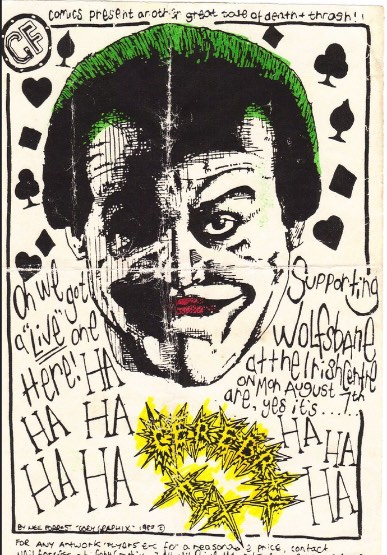 CF
comics present another great tale of death + thrash!!
Oh we
got
a "live" one
Here! HA
HA HA
HA HA
Supporting
Wolfsbane
at the Irish Centre
on Mon August 7th
are, yes it's....
HA HA
HA
FOR ANY ARTWORK FLYERS ETC for a reasonable price, contact